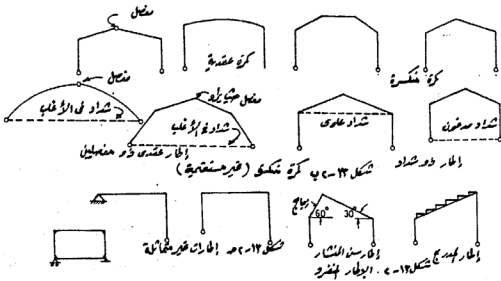 مفصل
كمرة عقدية
كمرة منكسرة
مفصل
شداد فى الأغلب
مفصل
شداد فى الأغلب
شداد علوى
شداد مدفون
إطار عقدى ذو مفصلين
إطار ذو شداد
شكل ١٣-٢ب كمرة منكسرة (غير مستقيمة)
زجاج
60°
30°
شكل ١٣-٢حـ إطارات غير متماثلة
إطار سن المنشار
إطار مدرج
شكل ١٣-٢. الإطار المنفرد